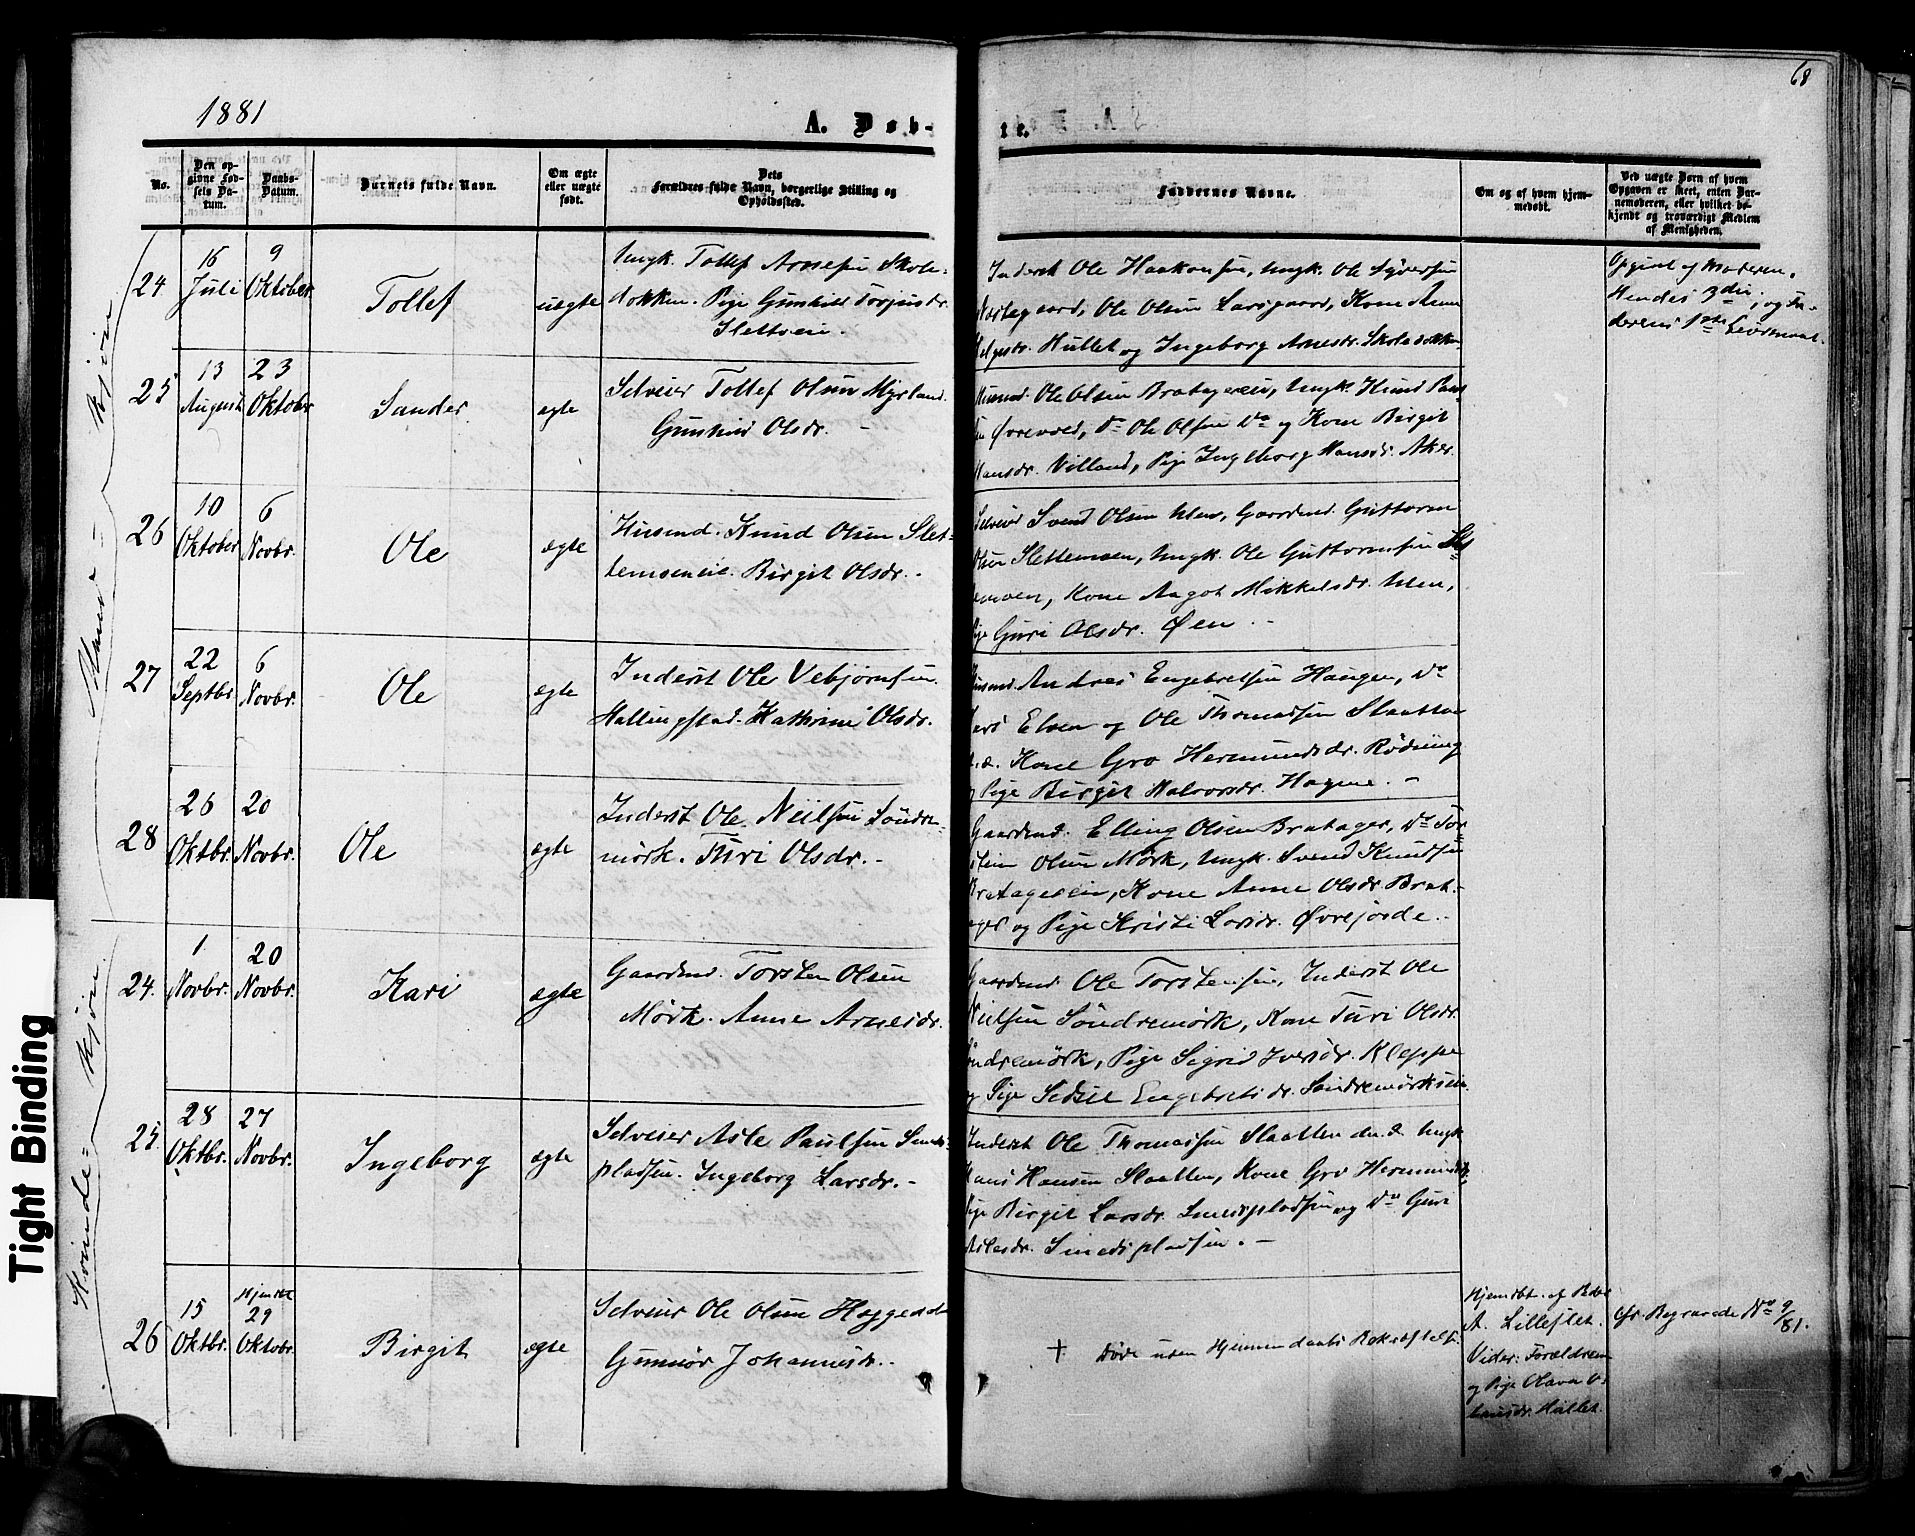 1881
A. Døb-
te.
68
No.
Den op-
givne Fød-
sels Da-
tum.
Daabs-
Datum.
Barnets fulde Navn.
Om ægte
eller uægte
født.
Dets
Forældres fulde Navn, borgerlige Stilling og
Opholdssted.
Faddernes Navne.
Om og af hvem hjem-
medøbt.
Ved uægte Børn af hvem
Opgaven er skeet, enten Bar-
nemoderen, eller hvilket be-
kjendt og troværdigt Medlem
af Menigheden.
Mand = Kjøn
24
16
Juli
9
Oktober
Tollef
uægte
Ungk. Tollef Arnesen Skole-
dokken. Pige Gunhild Torjusdr.
Slettveen.
Inderst Ole Haakonsen, Ungk. Ole Syversen
Ole Olsen Larsgaard, Kone Anne
Helgesdr. Hullet og Ingeborg Arnesdr. Skoledokk
Opgivet af Moderen.
Hendes 3die, og Fa-
derens 1ste Leiermaal.
25
13
August
23
Oktober
Sander
ægte
Selveier Tollef Olsen Myrland.
Gunhild Olsdr. -
Husmd. Ole Olsen Bratageiei, Ungk. Knud
Øvrevold, Do Ole Olsen Do og Kone Birgit
Hansdr. Villand, Pige Ingeborg Hansdr. Aker.
26
10
Oktober
6
Novbr.
Ole
ægte
Husmd. Knud Olsen Slet-
temoeneie. Birgit Olsdr. -
Selveier Svend Olsen Uhen, Gaardmd. Guttorm
Olsen Slettemoen, Ungk. Ole Guttormsen Slet
temoen, Kone Aagot Mikkelsdr. Uhen,
Pige Guri Olsdr. Øen. -
27
22
Septbr.
6
Novbr.
Ole
ægte
Inderst Ole Vebjørnsen
Hallingstad. Kathrine Olsdr.
Husmd. Andres Engebretsen Haugen, Do
Lars Elven og Ole Thomassen Slaatten
n.d. Kone Gro Hermundsdr. Rødning
og Pige Birgit Halvorsdr. Hagene. -
28
26
Oktbr.
20
Novbr.
Ole
ægte
Inderst Ole Neilsen Söndre-
mörk. Turi Olsdr. -
Gaardmd. Elling Olsen Bratager, Do Tor-
stein Olsen Mörk, Ungk. Svend Knudsen
Bratageeie, Kone Anne Olsdr. Brat-
ager og Pige Kristi Larsdr. Øvrejorde. -
Kvinde = Kjøn.
24.
1
Novbr.
20
Novbr.
Kari
ægte
Gaardmd. Torsten Olsen
Mörk. Anne Arnesdr.
Gaardmd Ole Torstensen, Inderst Ole
Neilsen Söndremörk, Kone Turi Olsdr.
Söndremörk, Pige Sigrid Iversdr. Kleppe
og Pige Sidsel Engebretsdr. Søndremörkseie.
25.
28
Oktbr.
27
Novbr.
Ingeborg
ægte
Selveier Asle Paulsen Smeds-
pladsen. Ingeborg Larsdr. -
Inderst Ole Thomassen Slaatten Ungk
Hans Hansen Slaatten, Kone Gro Hermundsdr.
Pige Birgit Larsdr. Smedspladsen og Do Guri
Aslesdr. Smedspladsen. -
26
15
Oktbr.
Hjemdbt
29
Oktobr.
Birgit
ægte
Selveier Ole Olsen
Gunnör Johannesdr. -
+ Døde uden Hjemmedaabs Bekræftelse.
Hjemdbt. af Peder
A. Lilleslet.
Vider: Forældrene
og Pige Olava
Hullet.
Cfr. Begravede No 9/81.
Tight Binding